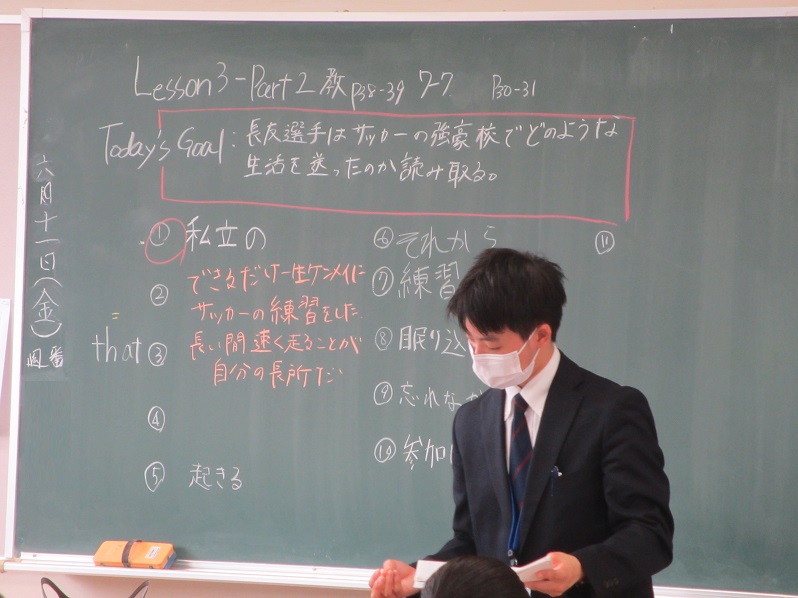 Lesson 3 - Part 2 教 P38-39 ワーク P30-31
Today's Goal : 長友選手はサッカーの強豪校でどのような
生活を送ったのか読み取る。
六月十一日(金)
週番
① 私立の
② できるだけ一生ケンメイに
サッカーの練習をした
that ③ 長い間速く走ることが
自分の長所だ
④
⑤ 起きる
⑥ それから
⑦ 練習
⑧ 眠り込
⑨ 忘れなが
⑩ 参加
⑪